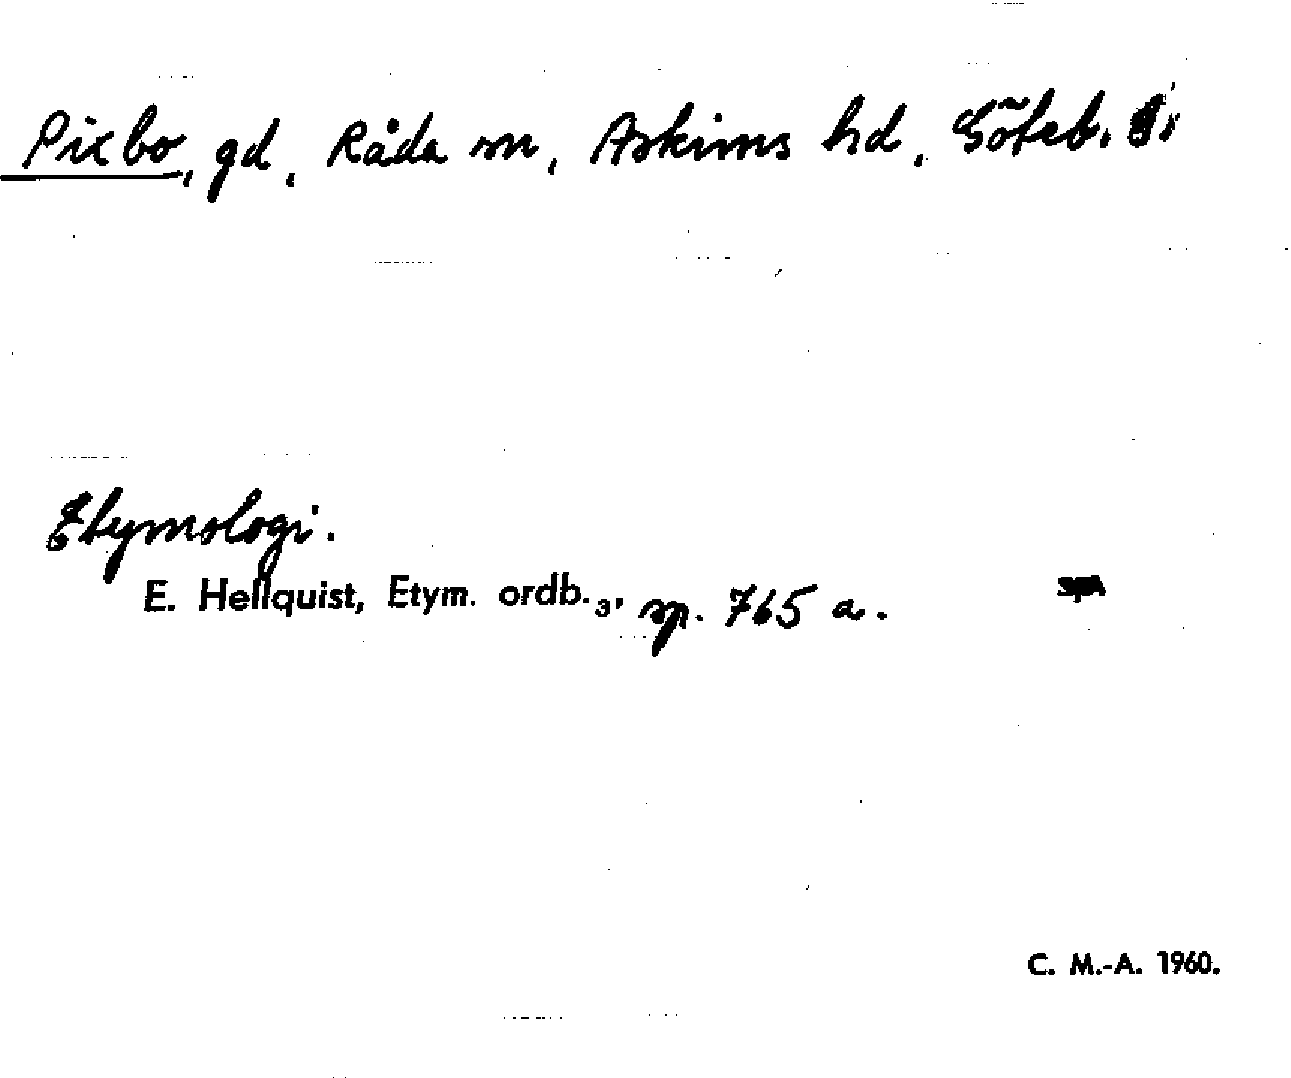 Pixbo, gd, Råda sn, Askims hd, Göteb.
Etymologi.
E. Hellquist, Etym. ordb. 3, sp. 765 a.
C. M.-A. 1960.